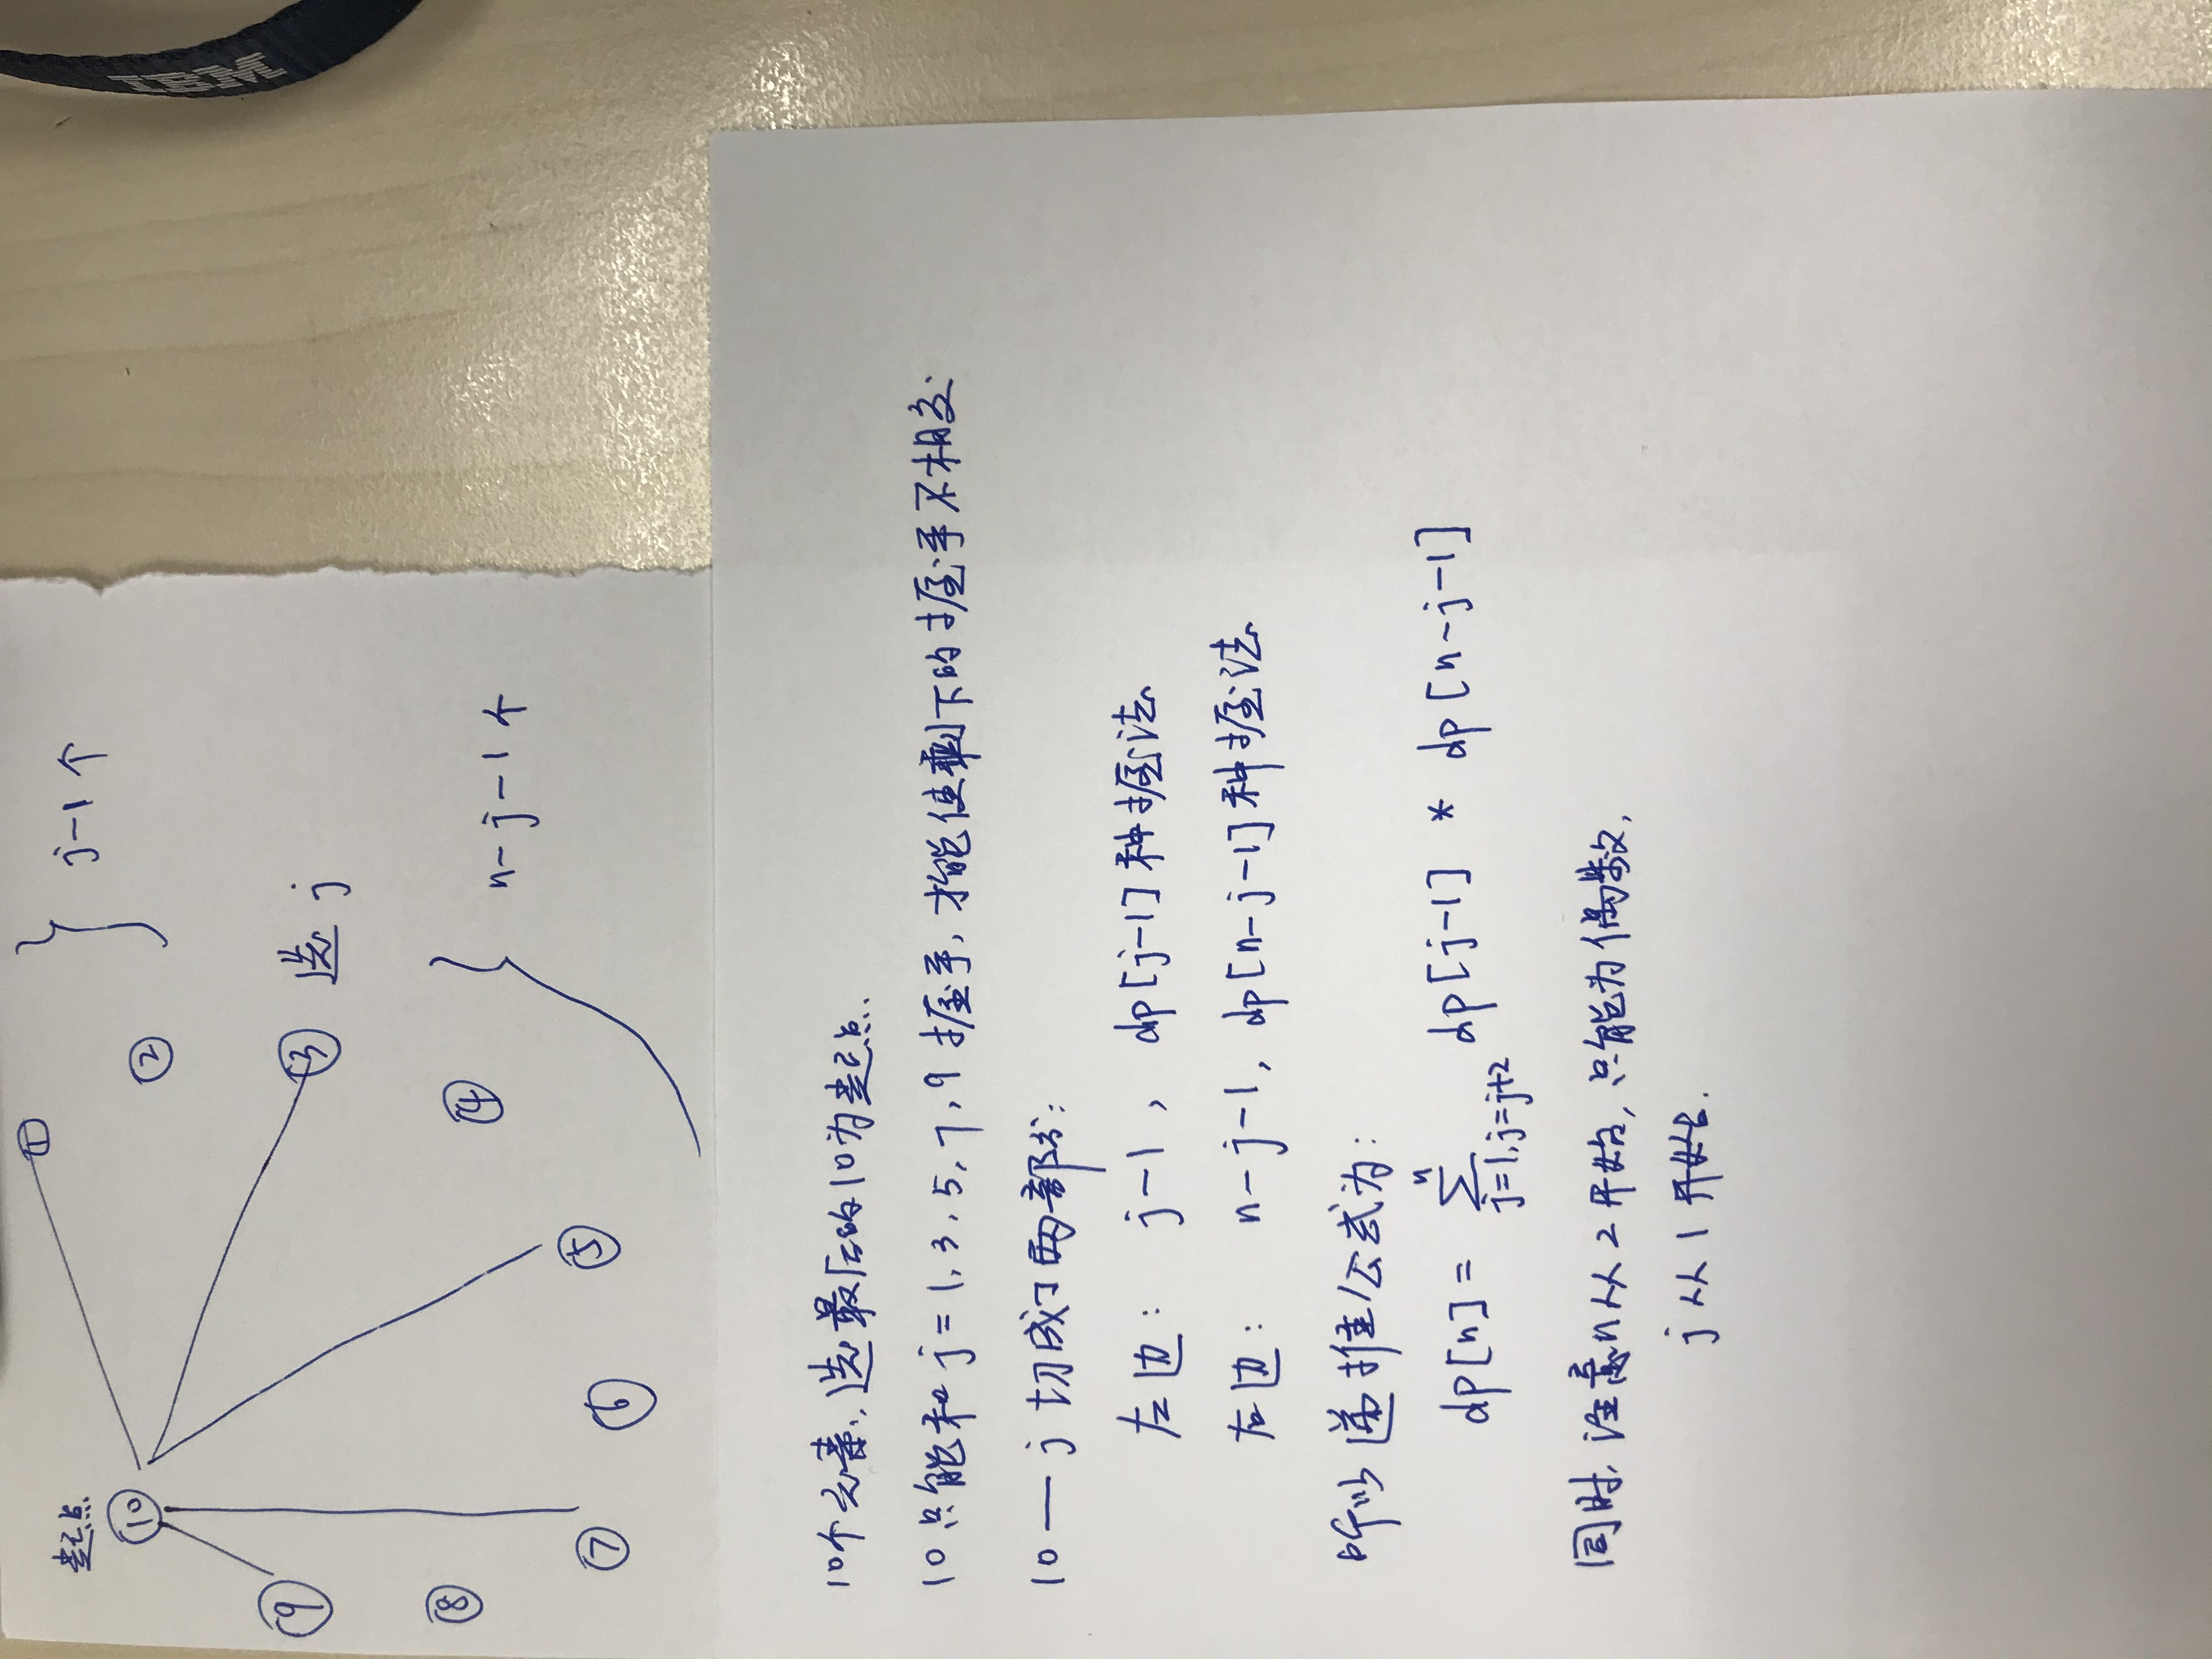 起点
①
j-1个
⑩
②
⑨
③ 选j
⑧
④
n-j-1个
⑦
⑥
⑤
IBM
10个元素, 选最后的10为起点.
10只能和j=1,3,5,7,9握手, 才能使剩下的握手不相交
10—j切成了两部分:
左边: j-1, dp[j-1]种握法
右边: n-j-1, dp[n-j-1]种握法
所以递推公式为:
dp[n] = ∑ⁿ_{j=1,j=j+2} dp[j-1] * dp[n-j-1]
同时, 注意n从2开始, 只能为偶数,
j从1开始.